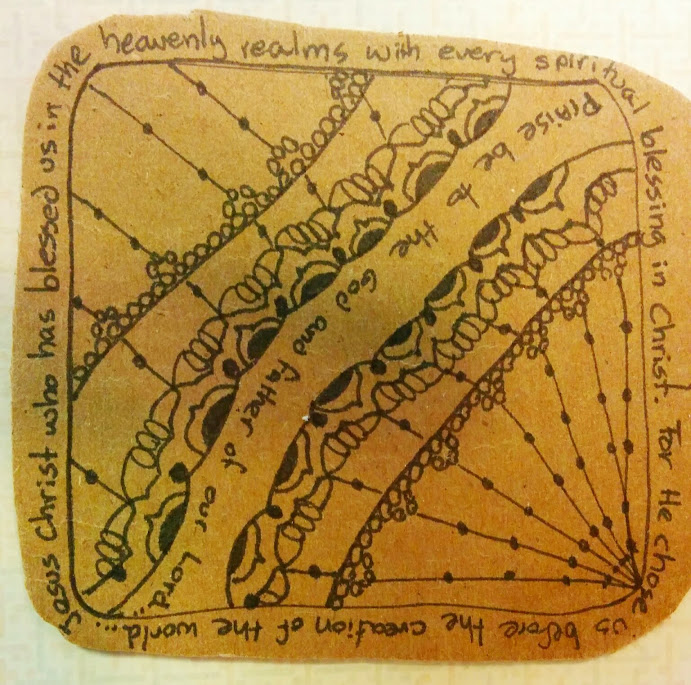 Praise be to the God and father of our Lord...
Jesus Christ who has blessed us in the
heavenly realms with every spiritual
blessing in Christ. For He chose
us before the creation of the world...